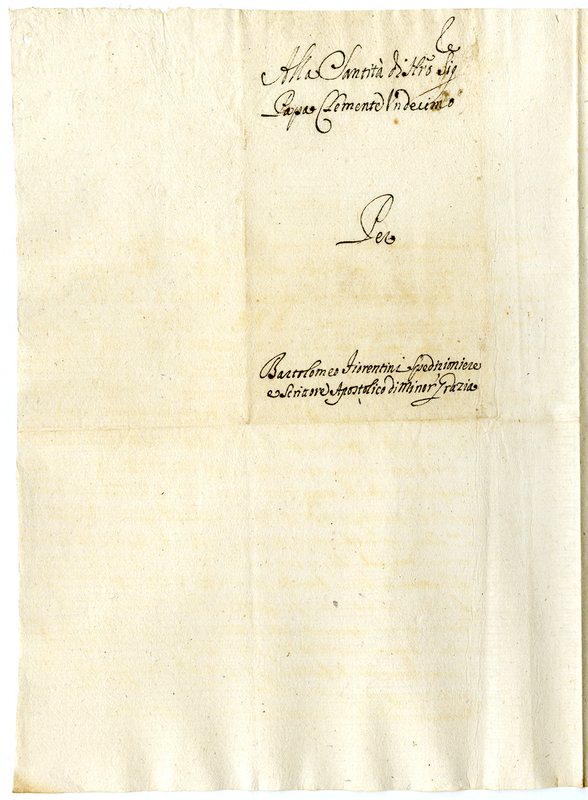 Alla Santità di Nrõ Sigre
Papa Clemente Undecimo
Per
Bartolomeo Fiorentini Spedizioniere
e Scrittore Apostolico di Minor Grazia